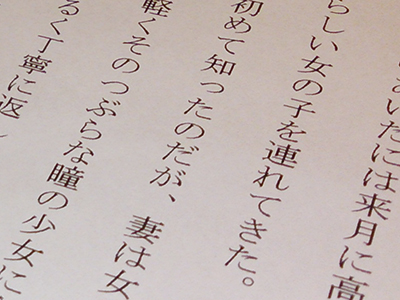 いたには来月に高
らしい女の子を連れてきた。
初めて知ったのだが、妻は女
軽くそのつぶらな瞳の少女に
るく丁寧に返し